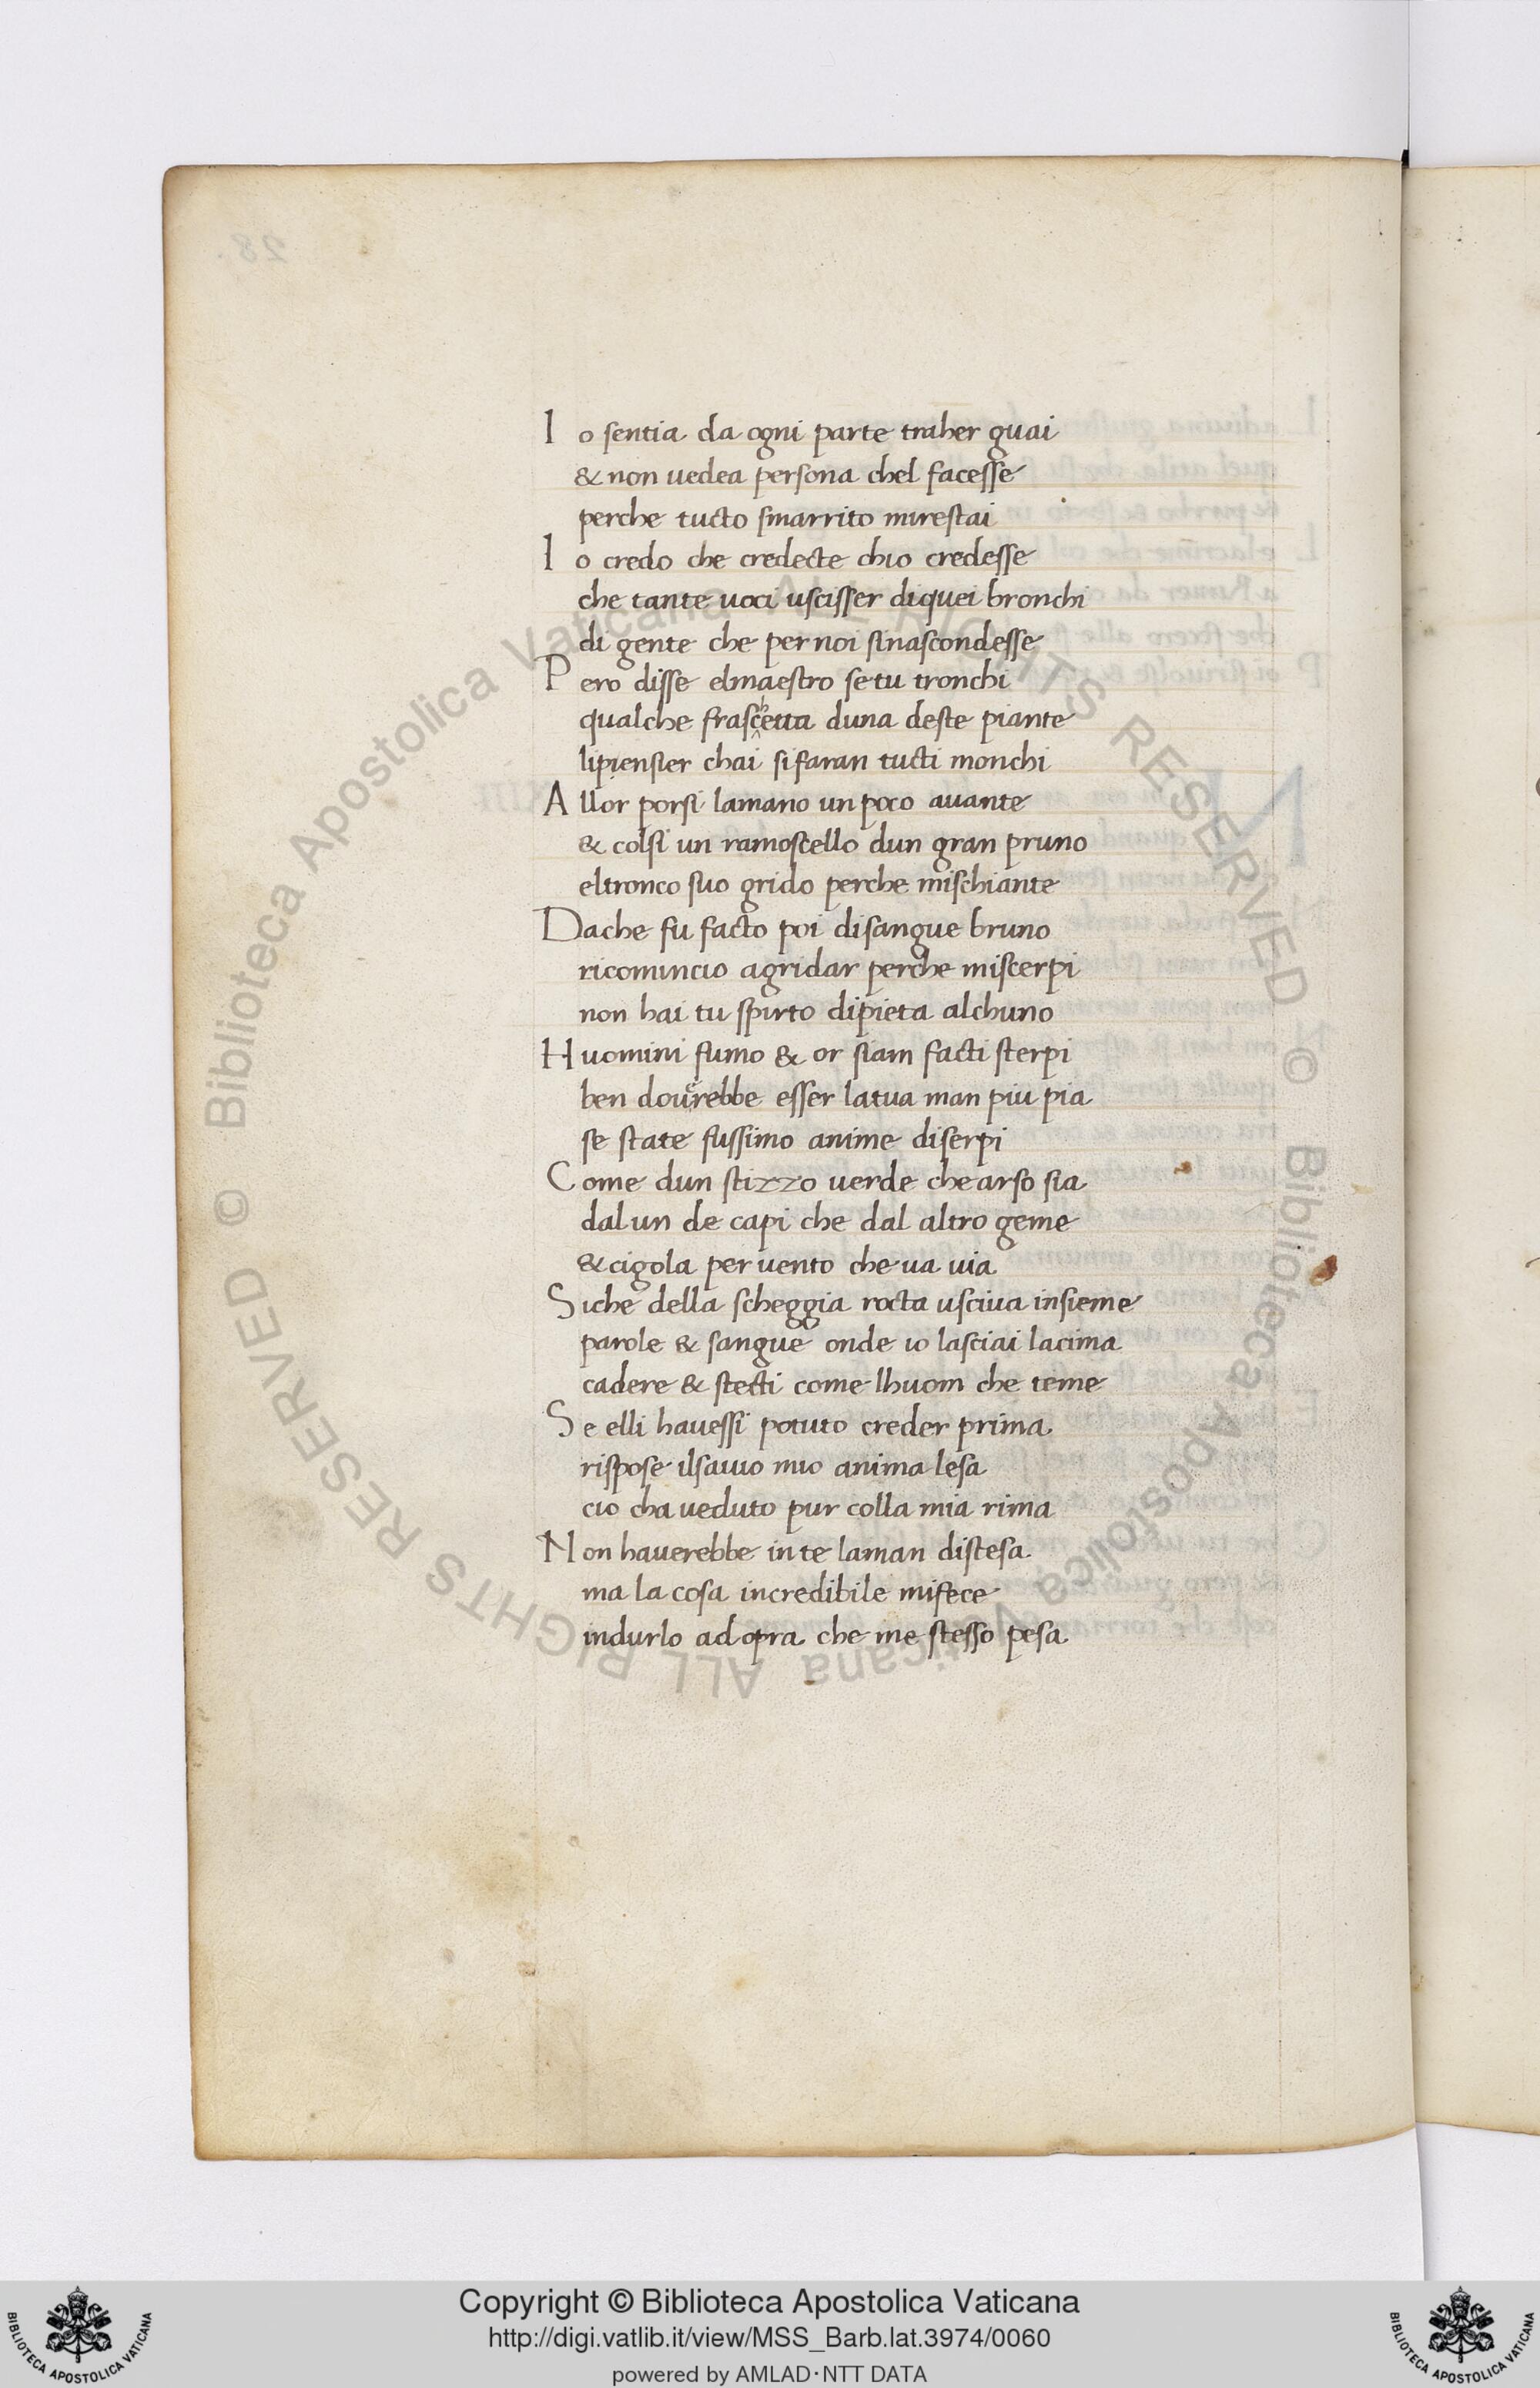 Io sentia da ogni parte traher guai
& non uedea persona chel facesse
perche tucto smarrito mirestai
Io credo che credecte chio credesse
che tante uoci uscisser diquei bronchi
di gente che per noi sinascondesse
Pero disse elmaestro se tu tronchi
qualche fraschetta duna deste piante
lipiensier chai sifaran tucti monchi
Allor porsi lamano un poco auante
& colsi un ramoscello dun gran pruno
eltronco suo grido perche mischiante
Dache fu facto poi disangue bruno
ricomincio agridar perche miscerpi
non hai tu spirto dipieta alchuno
Huomini fumo & or siam facti sterpi
ben douerebbe esser latua man piu pia
se state fussimo anime diserpi
Come dun stizzo uerde che arso sia
dal un de capi che dal altro geme
& cigola per uento che ua uia
Siche della scheggia rocta usciua insieme
parole & sangue onde io lasciai lacima
cadere & stecti come lhuom che teme
Se elli hauessi potuto creder prima
rispose ilsauio mio anima lesa
cio cha ueduto pur colla mia rima
Non hauerebbe in te laman distesa
ma la cosa incredibile mifece
indurlo ad opra che me stesso pesa
Copyright © Biblioteca Apostolica Vaticana
http://digi.vatlib.it/view/MSS_Barb.lat.3974/0060
powered by AMLAD·NTT DATA